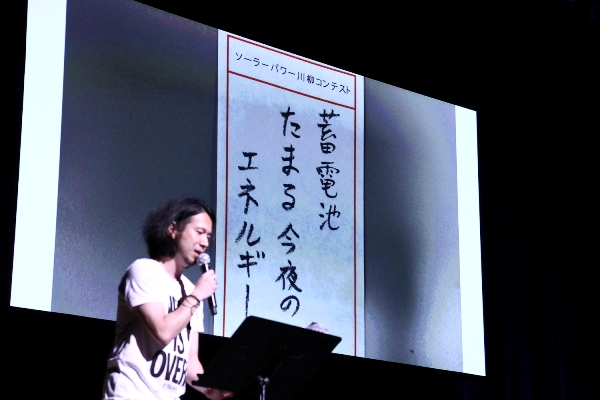 ソーラーパワー川柳コンテスト
蓄電池
たまる今夜の
エネルギー
IS
OVER